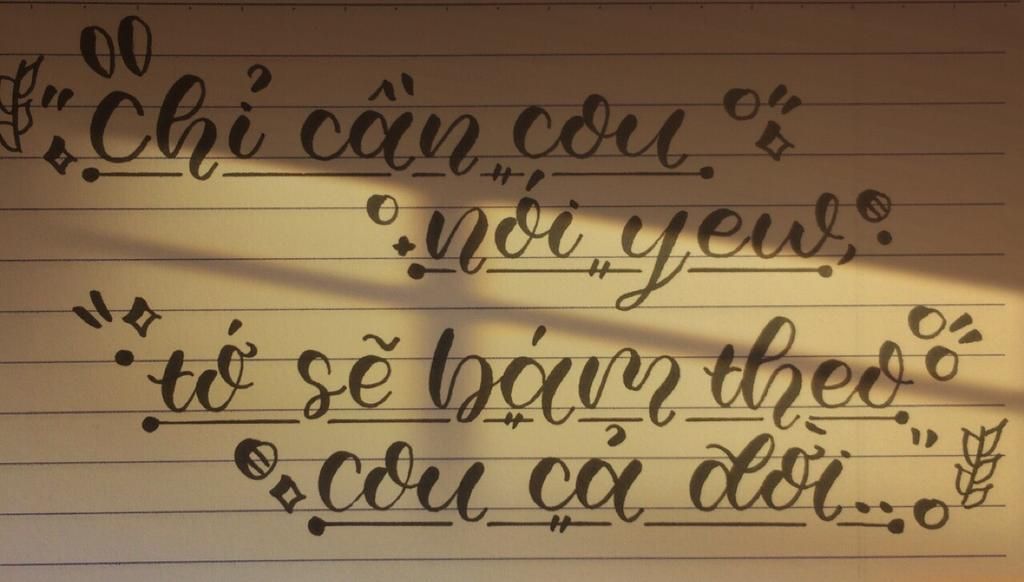 Chỉ cần cou
nói yew,
tớ sẽ bám theo
cou cả đời...